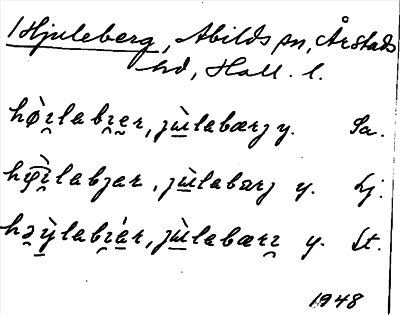 Hjuleberg, Abilds sn, Årstads
hd, Hall. l.
hø̀i̯labi̯e̯r, jùlabærj y. Sa.
hø̀i̯labjar, jùlabærj y. Lj.
hə̯ỳlabi̯ár, jùlabæri̯ y. St.
1948